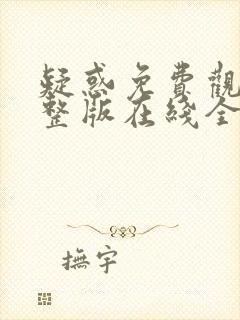 疑惑免費觀
整版在綫全
撫宇